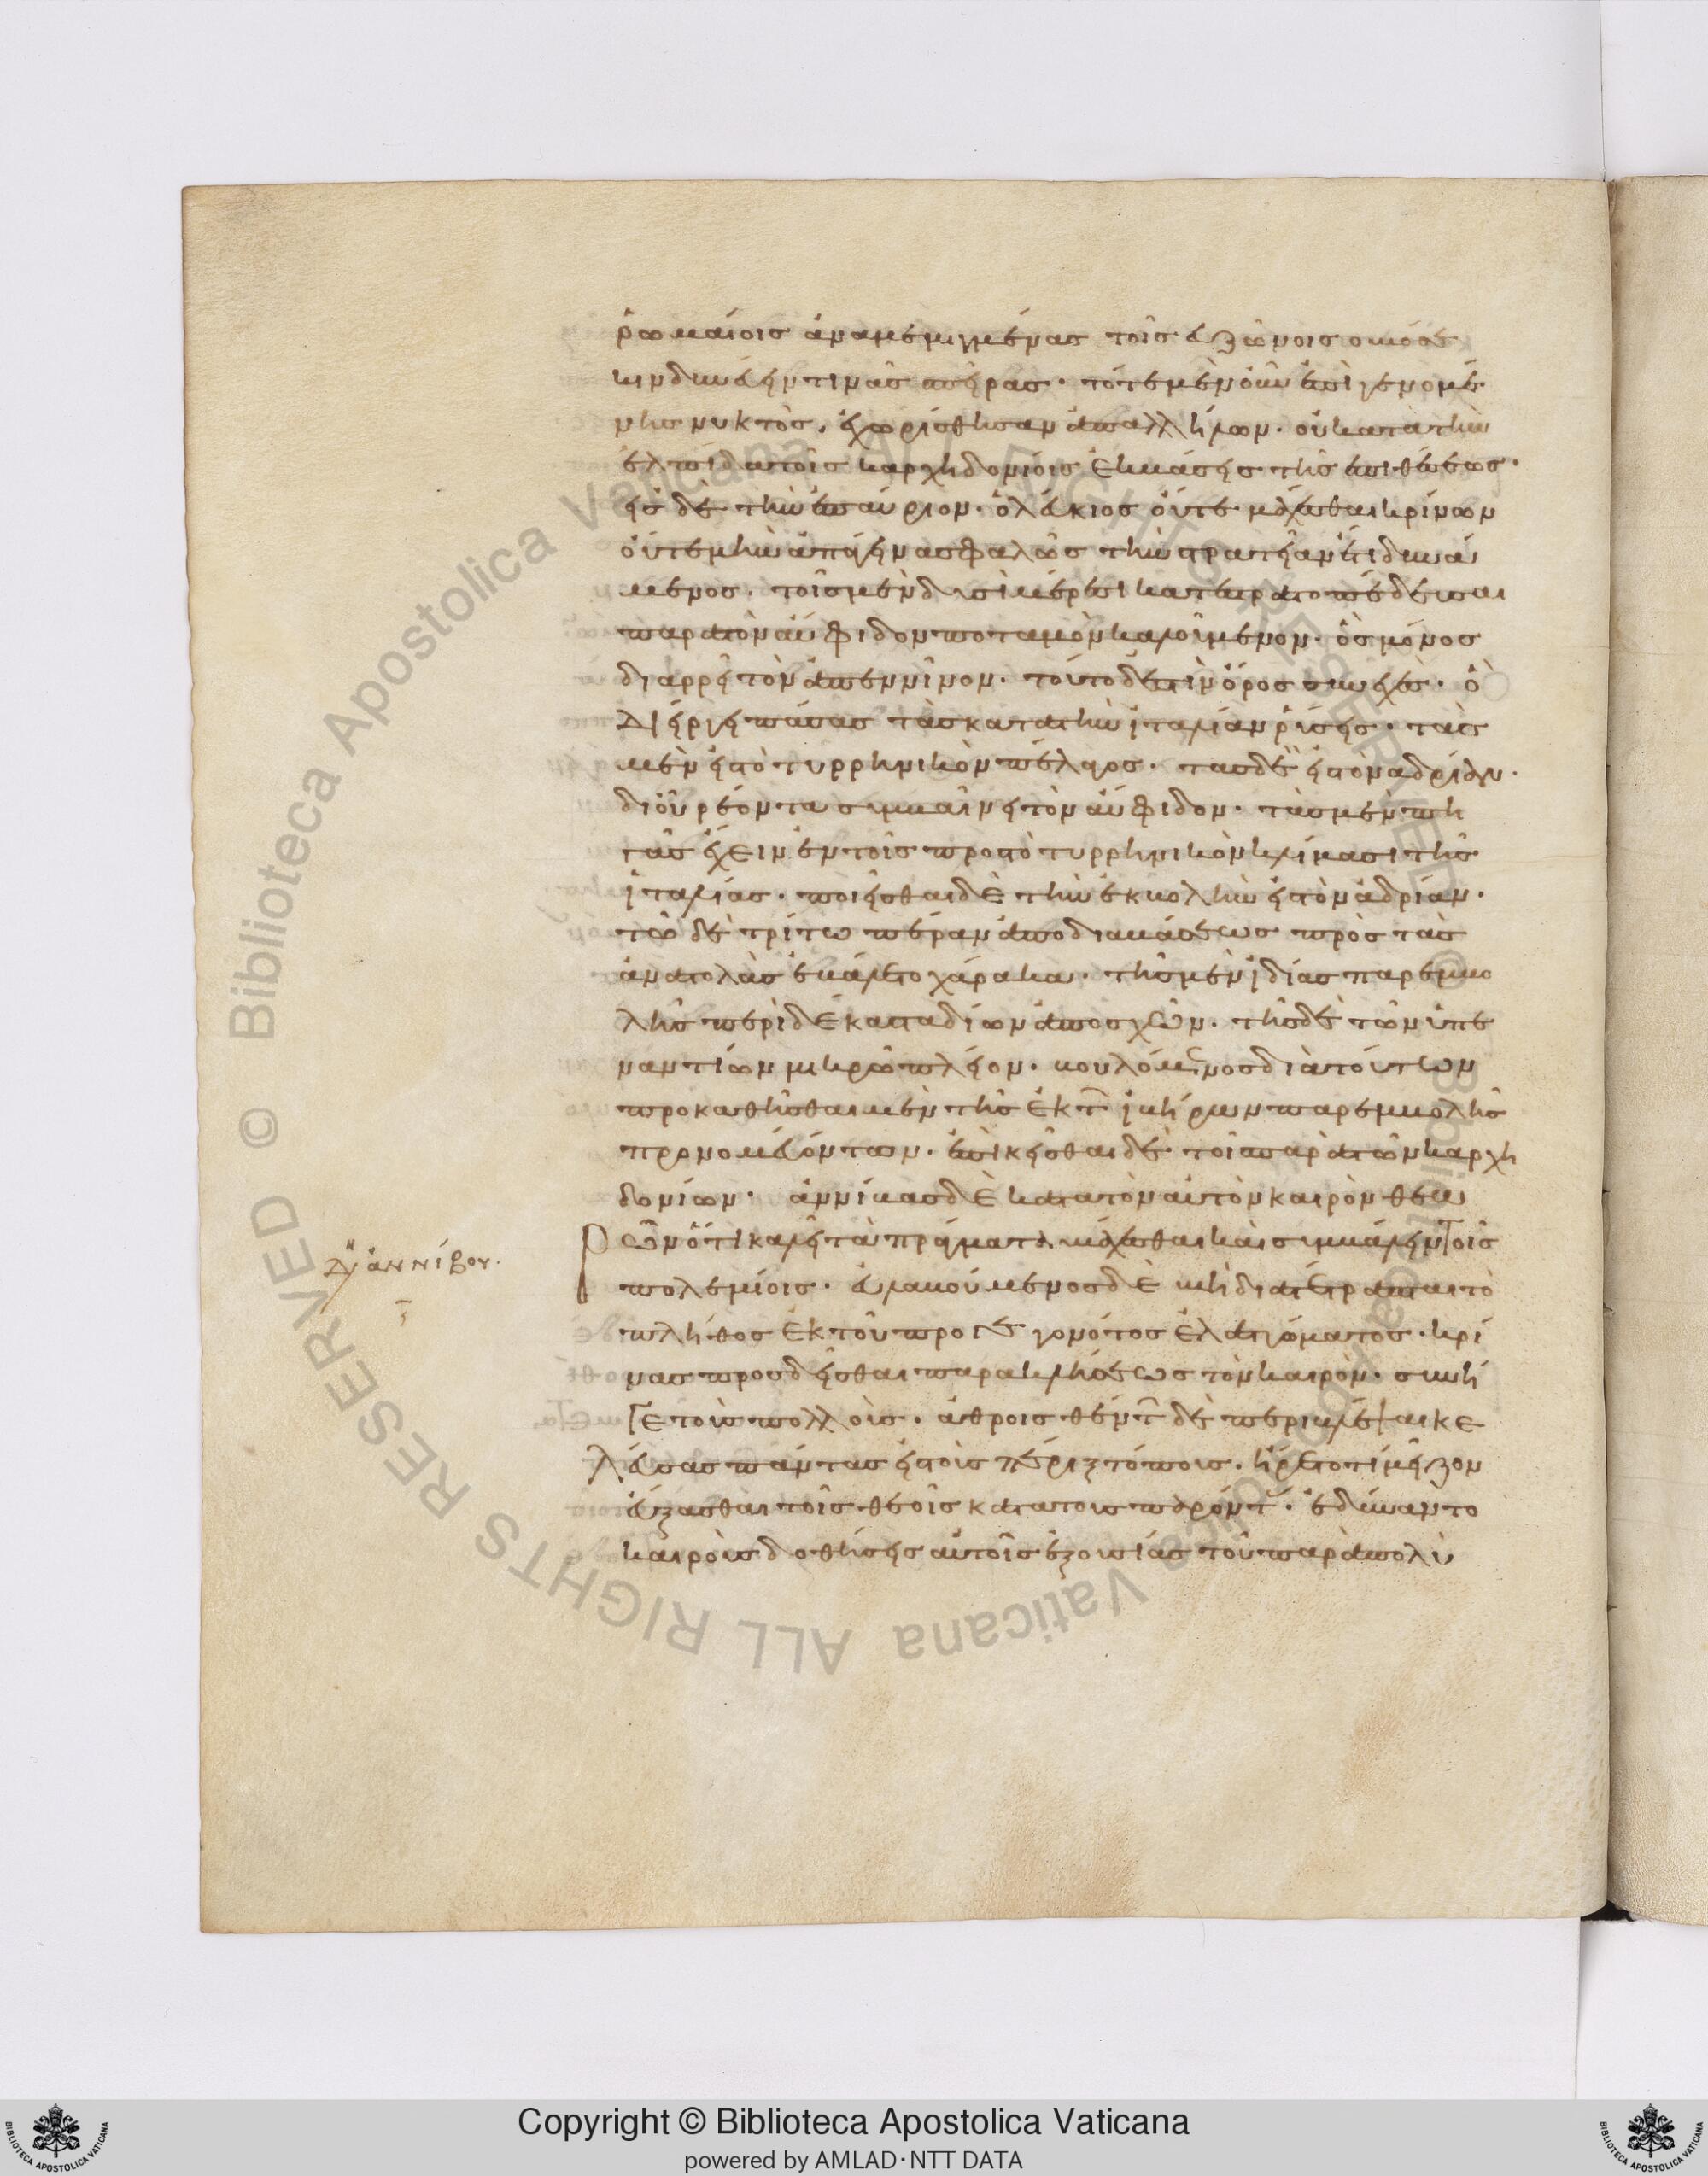 ῥωμαίοις ἀναμεμιγμένας τοῖς εὐζώνοις ὁμόσε
κινδυνεύειν τινὰς σπείρας. τότε μὲν οὖν ἐπιγενομέ
νης νυκτὸς, ἐχωρίσθησαν ἀπαλλήλων. οὐ κατὰ τὴν
ἐλπίδα τοῖς καρχηδονίοις ἐκβάσης τῆς ἐπιθέσεως.
εἰς δὲ τὴν ἐπαύριον. ὁ λεύκιος οὔτε μάχεσθαι κρίνων
οὔτε μὴν ἀπάγειν ἀσφαλῶς τὴν στρατείαν ἔτι δυνά
μενος. τοῖς μὲν δυσὶ μέρεσι κατεστρατοπέδευσε
παρὰ τὸν αὔφιδον ποταμὸν καλούμενον. ὃς μόνος
διαρρεῖ τὸν ἀπεννῖνον. τοῦτο δ' ἔστιν ὄρος συνεχὲς. ὃ
διείργει πάσας τὰς κατὰ τὴν ἰταλίαν ῥύσεις. τὰς
μὲν εἰς τὸ τυρρηνικὸν πέλαγος. τὰς δὲ εἰς τὸν ἀδρίαν.
δι' οὗ ῥέοντα συμβαίνει τὸν αὔφιδον. τὰς μὲν πη
γὰς ἔχειν ἐν τοῖς πρὸς τὸ τυρρηνικὸν κλίμασι τῆς
ἰταλίας. ποιεῖσθαι δὲ τὴν ἐκβολὴν εἰς τὸν ἀδρίαν.
τῶ δὲ τρίτω πέραν ἀπὸ διαβάσεως πρὸς τὰς
ἀνατολὰς ἐβάλετο χάρακα. τῆς μὲν ἰδίας παρεμβο
λῆς περὶ δέκα σταδίων ἀποσχὼν. τῆς δὲ τῶν ὑπε
ναντίων μικρῶ πλεῖον. βουλόμενος διὰ τούτων
προκαθῆσθαι μὲν τῆς ἐκ τ παρεμβολῆς
προνομευόντων. ἐπικεῖσθαι δὲ τοῖς παρὰ τῶν καρχη
δονίων. ἀννίβας δὲ κατὰ τὸν αὐτὸν καιρὸν θεω
ρῶν ὅτι καλεῖ τὰ πράγματα μάχεσθαι καὶ συμβάλλειν τοῖς
πολεμίοις. εὐλαβούμενος δὲ μὴ διατέτραπται τὸ
πλῆθος ἐκ τοῦ προγεγονότος ἐλαττώματος. κρί
νας προσδεῖσθαι παρακλήσεως τὸν καιρὸν. συνῆ
γε τοὺς πολλοὺς. ἀθροισθέντ δὲ περιβλέψαι κε
λεύσας πάντας εἰς τοὺς πέριξ τόπους. ἤρετο τί μεῖζον
εὔξασθαι τοῖς θεοῖς κατὰ τοὺς παρόντ. ἐδύναντο
καιροὺς δοθείσης αὐτοῖς ἐξουσίας τοῦ παρὰ πολὺ
δη ἀννίβου.